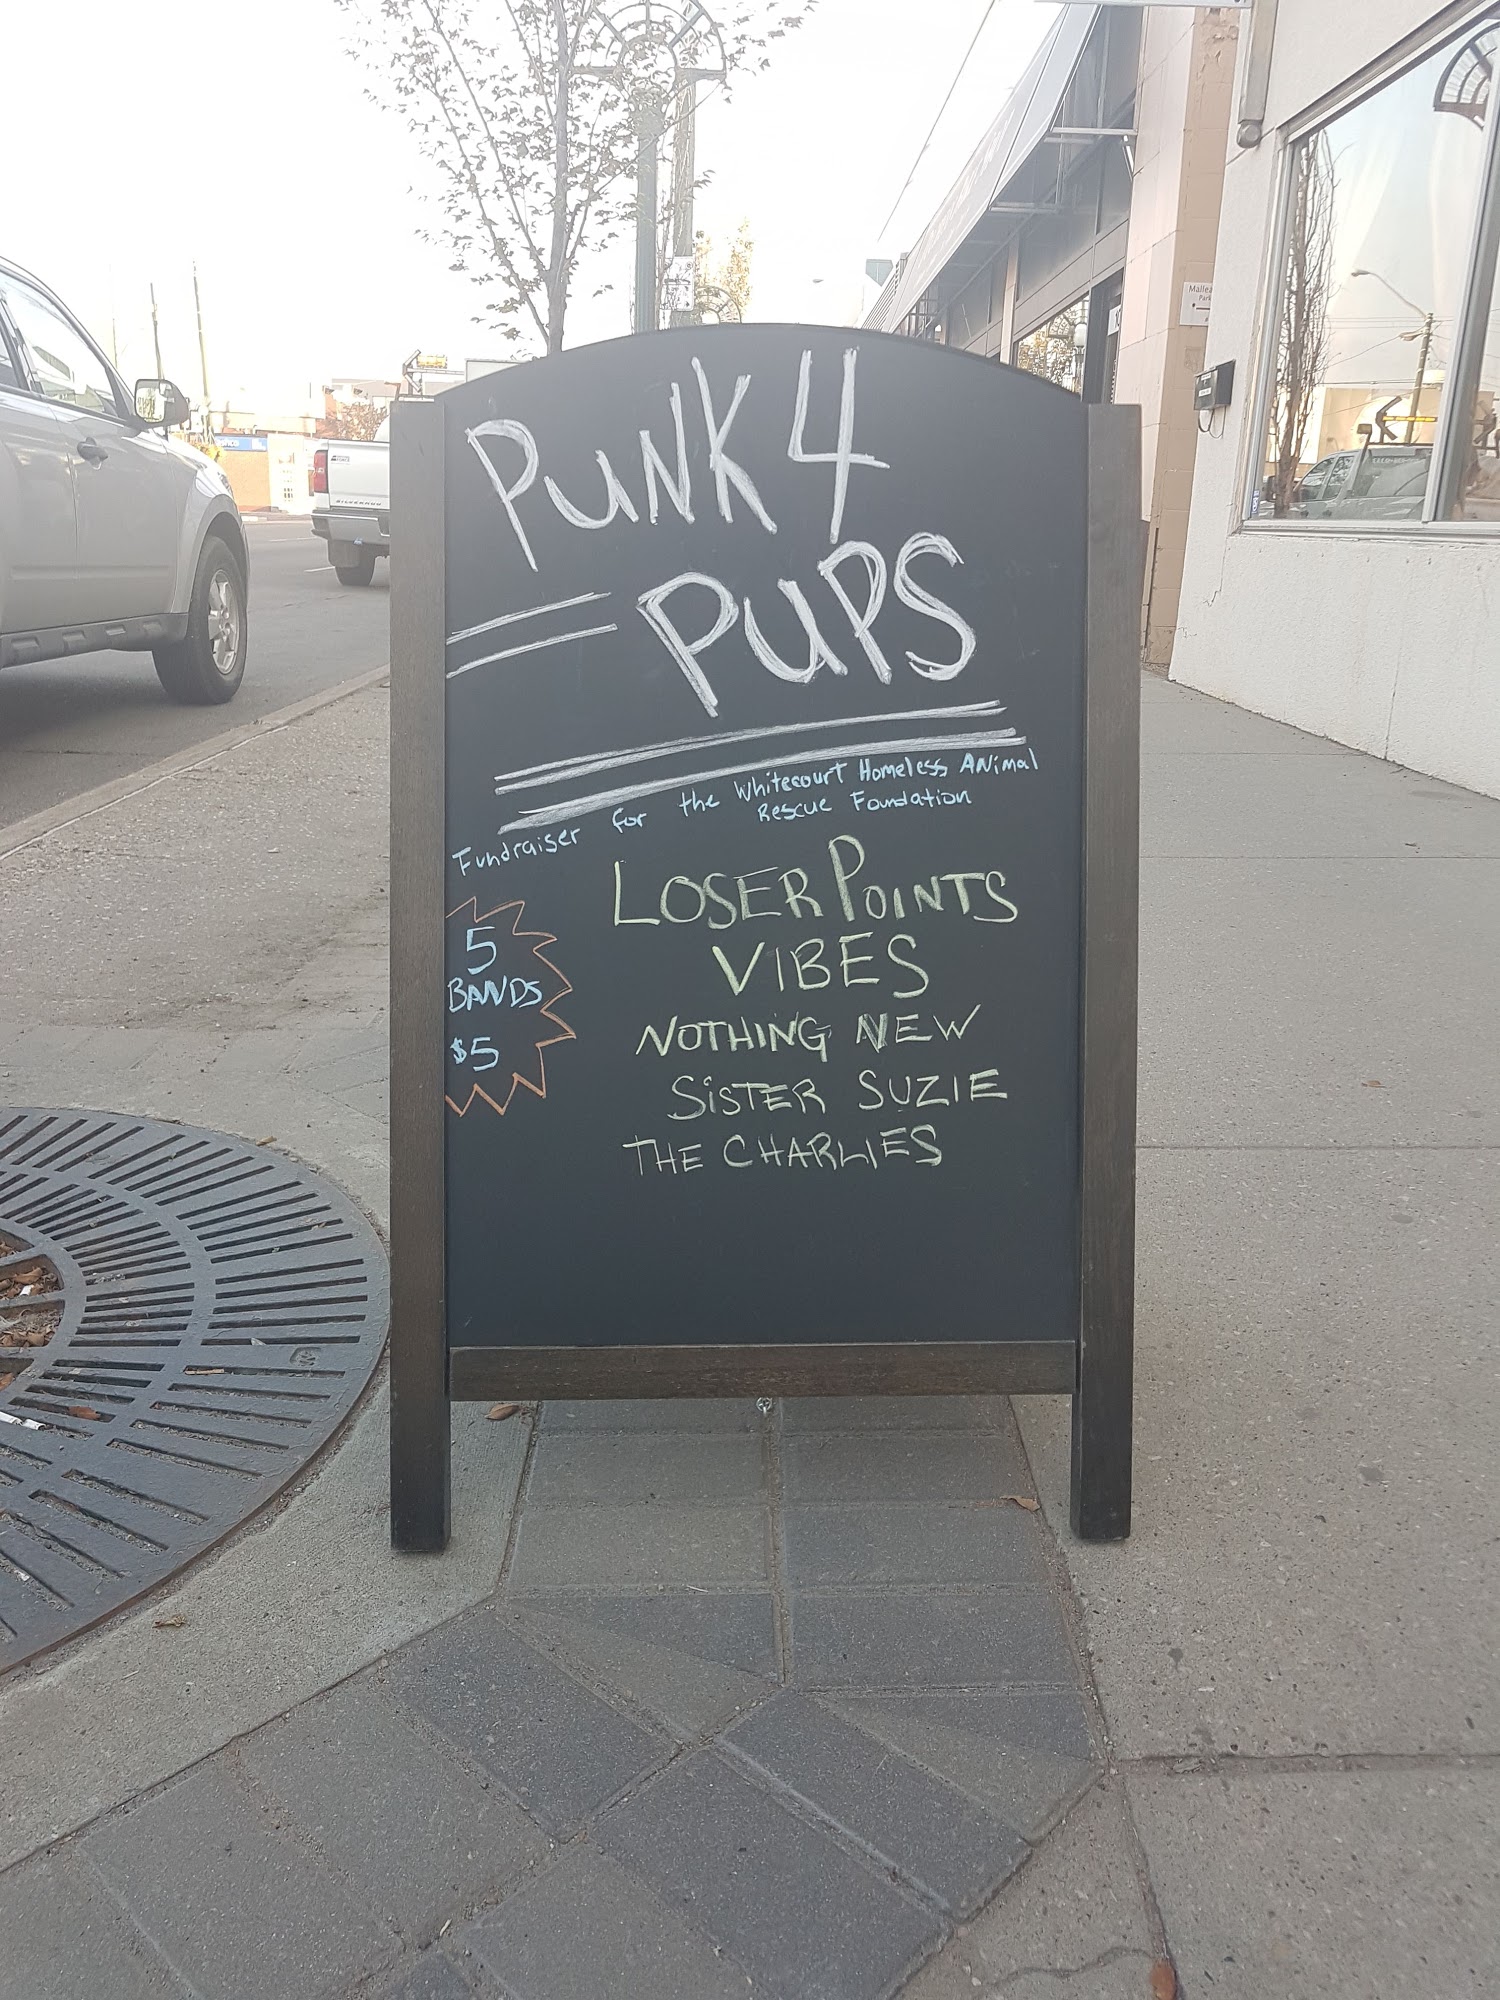 PUNK 4
PUPS
Fundraiser for the Whitecourt Homeless Animal
Rescue Foundation
5
BANDS
$5
LOSER POINTS
VIBES
NOTHING NEW
SiSTER SUZIE
THE CHARLIES
SILVERADO